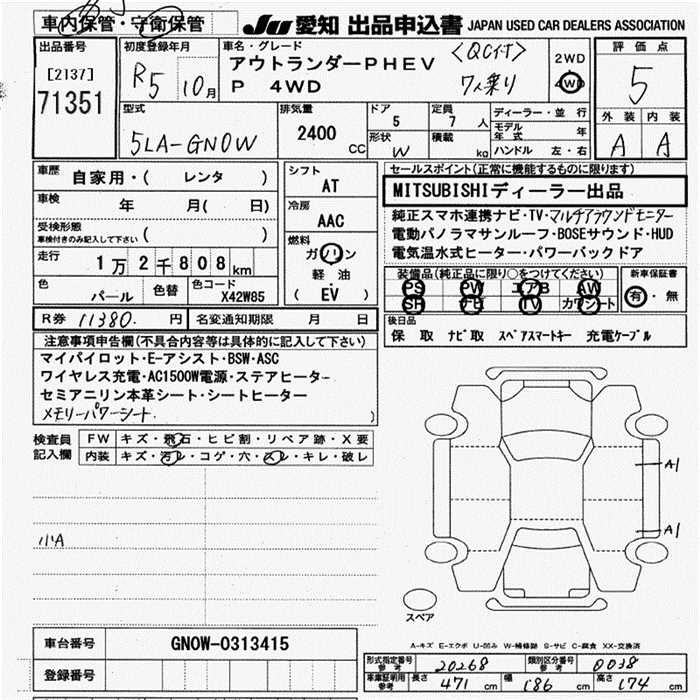 車内保管・守衛保管
JU 愛知 出品申込書 JAPAN USED CAR DEALERS ASSOCIATION
出品番号
[2137]
71351
初度登録年月
R5 10月
車名・グレード
アウトランダーPHEV
P 4WD
7人乗り
2WD
4WD
評価点
5
外装 内装
A A
型式
5LA-GN0W
排気量
2400
CC
ドア
5
形状
W
定員
7 人
積載
kg
ディーラー・並行
モデル年式 年
ハンドル 左・右
車歴
自家用・( レンタ )
車検
年 月( 日)
受検形態
車検付きのみ記入して下さい ( )
走行
1万2千808km
色
パール
色替
色コード
X42W85
シフト
AT
冷房
AAC
燃料
ガソリン
軽油
( EV )
R券 11380. 円
名変通知期限 月 日
セールスポイント(正常に機能するものに限ります)
MITSUBISHIディーラー出品
純正スマホ連携ナビ・TV・マルチアラウンドモニター
電動パノラマサンルーフ・BOSEサウンド・HUD
電気温水式ヒーター・パワーバックドア
装備品(純正品に限り○をつけてください)
PS PW エアB AW
SR ナビ TV カワシート
新車保証書
有・無
後日品
保 取 ナビ取 スペアスマートキー 充電ケーブル
注意事項申告欄(不具合内容等は具体的に記入して下さい)
マイパイロット・E-アシスト・BSW・ASC
ワイヤレス充電・AC1500W電源・ステアヒーター
セミアニリン本革シート・シートヒーター
メモリーパワーシート )
検査員記入欄
FW キズ・飛石・ヒビ割・リペア跡・X要
内装 キズ・汚レ・コゲ・穴・スレ・キレ・破レ
小A
A1
A1
スペア
A-キズ E-エクボ U-凹み W-補修跡 S-サビ C-腐食 XX-交換済
車台番号
GN0W-0313415
登録番号
形式指定番号 参考 20268
類別区分番号 参考 0038
車庫証明用 参考 長さ 471 cm 幅 186 cm 高さ 174 cm